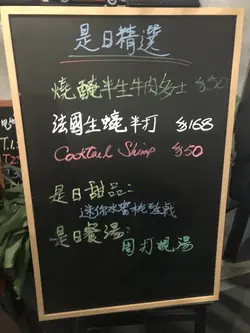 是日精選
燒醃半生牛肉多士 $50
法國生蠔半打 $168
Cocktail Shimp $50
是日甜品:
迷你水蜜桃
是日餐湯:
周打蜆湯